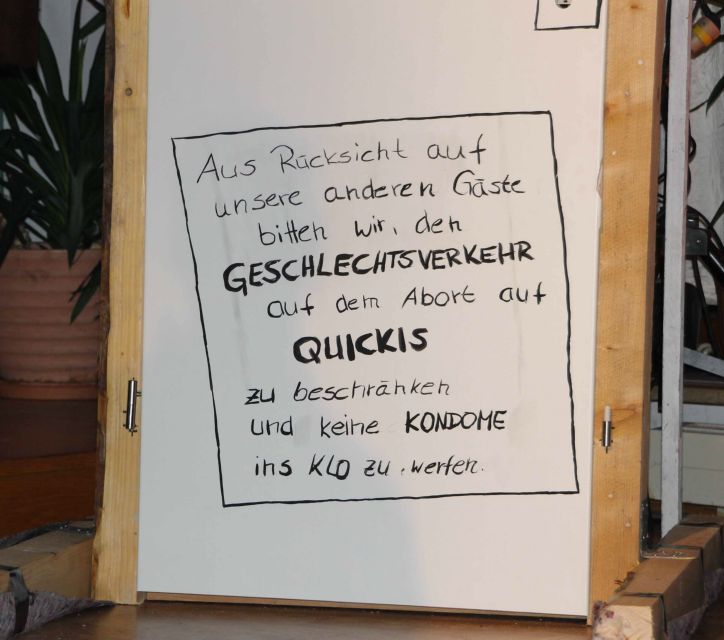 Aus Rücksicht auf
unsere anderen Gäste
bitten wir, den
GESCHLECHTSVERKEHR
auf dem Abort auf
QUICKIS
zu beschränken
und keine KONDOME
ins KLO zu werfen.